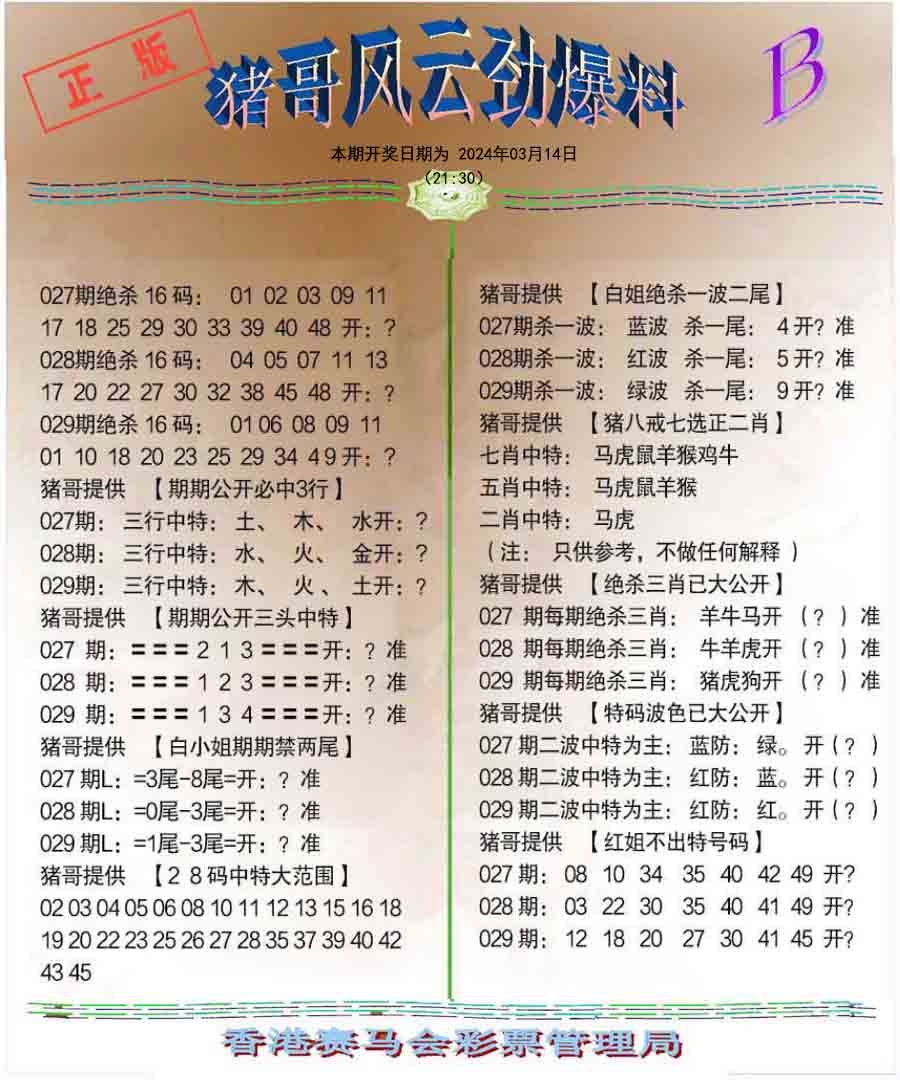 正版
猪哥风云劲爆料
B
本期开奖日期为 2024年03月14日
(21:30)
027期绝杀16码： 01 02 03 09 11
17 18 25 29 30 33 39 40 48 开：?
028期绝杀16码： 04 05 07 11 13
17 20 22 27 30 32 38 45 48 开：?
029期绝杀16码： 01 06 08 09 11
01 10 18 20 23 25 29 34 49 开：?
猪哥提供 【期期公开必中3行】
027期：三行中特：土、 木、 水开：?
028期：三行中特：水、 火、 金开：?
029期：三行中特：木、 火、 土开：?
猪哥提供 【期期公开三头中特】
027 期：〓〓〓 2 1 3 〓〓〓开：? 准
028 期：〓〓〓 1 2 3 〓〓〓开：? 准
029 期：〓〓〓 1 3 4 〓〓〓开：? 准
猪哥提供 【白小姐期期禁两尾】
027期L：=3尾-8尾=开：? 准
028期L：=0尾-3尾=开：? 准
029期L：=1尾-3尾=开：? 准
猪哥提供 【２８码中特大范围】
02 03 04 05 06 08 10 11 12 13 15 16 18
19 20 22 23 25 26 27 28 35 37 39 40 42
43 45
猪哥提供 【白姐绝杀一波二尾】
027期杀一波： 蓝波 杀一尾： 4开? 准
028期杀一波： 红波 杀一尾： 5开? 准
029期杀一波： 绿波 杀一尾： 9开? 准
猪哥提供 【猪八戒七选正二肖】
七肖中特： 马虎鼠羊猴鸡牛
五肖中特： 马虎鼠羊猴
二肖中特： 马虎
（注： 只供参考，不做任何解释）
猪哥提供 【绝杀三肖已大公开】
027 期每期绝杀三肖： 羊牛马开 （?）准
028 期每期绝杀三肖： 牛羊虎开 （?）准
029 期每期绝杀三肖： 猪虎狗开 （?）准
猪哥提供 【特码波色已大公开】
027期二波中特为主：蓝防：绿。开（?）
028期二波中特为主：红防：蓝。开（?）
029期二波中特为主：红防：红。开（?）
猪哥提供 【红姐不出特号码】
027期： 08 10 34 35 40 42 49 开?
028期： 03 22 30 35 40 41 49 开?
029期： 12 18 20 27 30 41 45 开?
香港赛马会彩票管理局